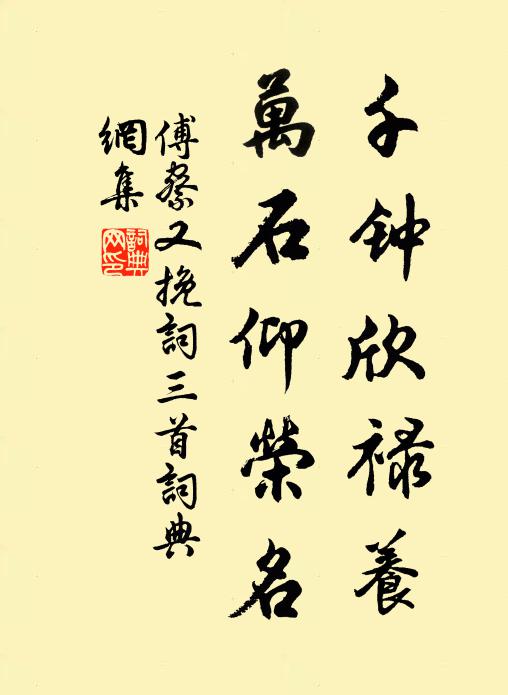 千钟欣禄養
萬石仰榮名
傅察又挽詞三首詞典
網集
詞典
网印